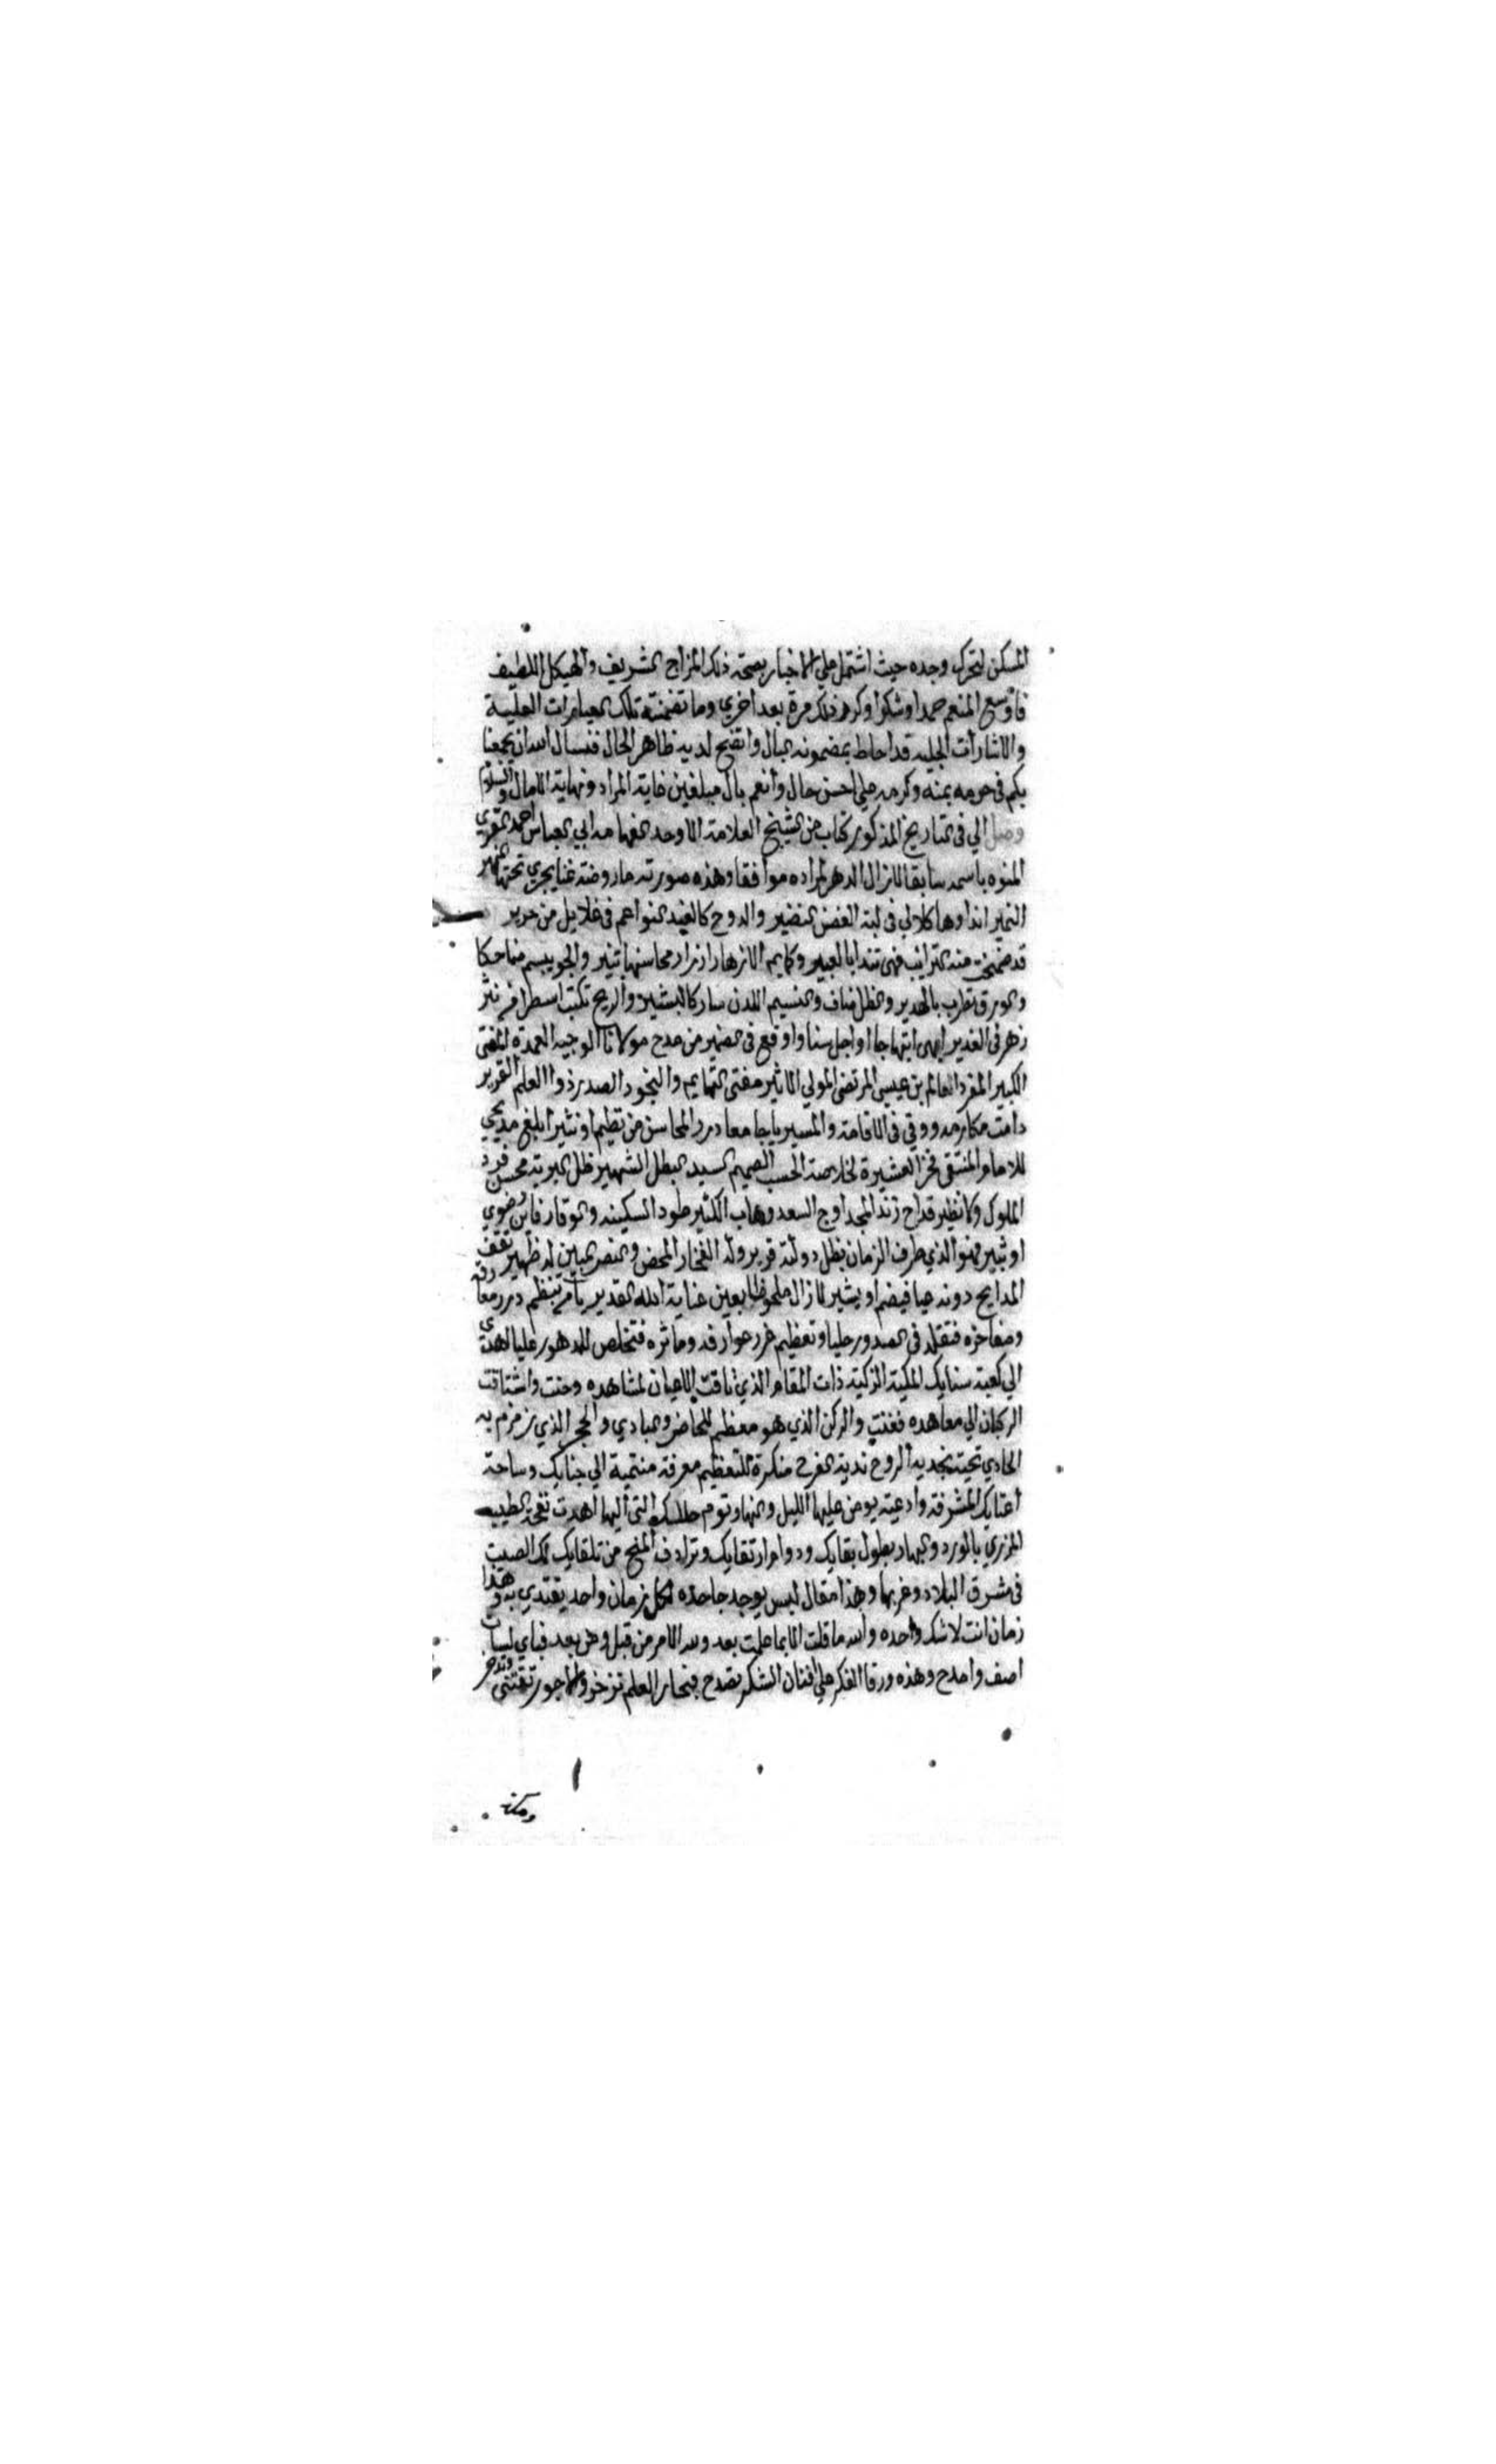 المسكن لتحرك وجده حيث اشتمل علي الاخبار بصحة ذلك المزاج الشريف والهيكل اللطيف
فاوسع المنعم حمدا وشكرا وكرر ذلك مرة بعد اخري وما تضمنته تلك العبارات العلية
والاشارات الجليه قد احاط بمضمونه البال واتضح لديه ظاهر الحال فنسال الله ان يجمعنا
بكم في حرمه بمنه وكرمه علي احسن حال وانعم بال مبلغين غاية المراد ونهاية الامال والسلام
وصل الي في التاريخ المذكور كتاب من الشيخ العلامة الاوحد الفهامه ابي العباس احمد المقري
المنوه باسمه سابقا لازال الدهر لمراده موافقا وهذه صورته ما روضة غنا يجري تحتها النهر
النمير انداوها كلالي في لبة الغصن النضير والدوح كالغيد النواعم في غلايل من حرير
قد ضمخت منه الترايب فهي تندا بالعبير وكمايم الازهار ازرار محاسنها تنير والجو يبسم ضاحكا
والورق تطرب بالهدير والظل ضاف والنسيم اللدن سار كالبشير والريح تكتب اسطرا في نثر
زهر في الغدير ابهي ابتهاجا او اجل سنا واوقع في الضمير من مدح مولانا الوجيه العمدة المفتي
الكبير المفرد العالم بن عيسي المرتضي المولي الاثير مفتي التهايم والنجود الصدر ذو العلم الغزير
دامت مكارمه ووقي في الاقامة والمسير يا جامعا درر المحاسن من نظيم او نثير ابلغ مديحي
للامام المنتقي فخر العشيرة لخلاصة الحسب الصميم السيد البطل الشهير ظل البرية محسن فرد
الملوك ولا نظير قداح زند المجد اوج السعد وهاب الكثير طود السكينه والوقار فاين رضوي
او ثبير فهو الذي طرف الزمان بظل دولته قرير وله الفخار المحض والنصر المبين له ظهير تقف
المدايح دونه عيا فيضم او يشير لازال ملحوظا بعين عناية الله القدير يا من تنظم درر معارفه
ومفاخره فتقلد في الصدور حليا وتعظيم غرر عوارفه وماثره فتخلص للدهور عليا اهدي
الي كعبة سنايك المكية الزكية ذات المقام الذي تاقت الاعيان لمشاهده وحنت واشتاقت
الركبان الي معاهده فغنت والركن الذي هو معظم للحاضر والبادي والحجر الذي زمزم به
الحادي تحية نجدية الروح ندية العرف منكرة للتعظيم معرفة منتمية الي جنابك وساحة
اعتابك المشرفة وادعية يومن عليها الليل والنهار وتوم حللك التي اليها اهدت نفحة الطيبه
المزري بالورد والبهار بطول بقايك ودوام ارتقايك وترادف المنح من تلقايك لك الصيت
في شرق البلاد وغربها وهذا مقال ليس يوجد جاحده لكل زمان واحد يقتدي به وهذا
زمان انت لا شك واحده والله ما قلت الا بما علمت بعد ولله الامر من قبل ومن بعد فباي لسان
اصف وامدح وهذه ورقا الفكر علي افنان الشكر تصدح فبحار العلم تزخر والاجور تقتني وتدخر
ومكة